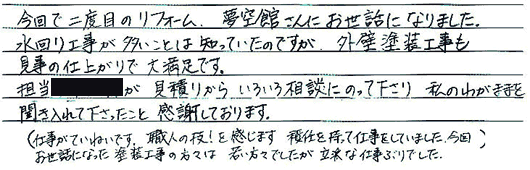 今回で二度目のリフォーム、夢空館さんにお世話になりました。
水回り工事が多いことは知っていたのですが、外壁塗装工事も
見事の仕上がりで大満足です。
担当 が見積りからいろいろ相談にのって下さり 私のわがままを
聞き入れて下さったこと 感謝しております。
(仕事がていねいです。職人の技!を感じます 責任を持って仕事をしていました。今回)
お世話になった塗装工事の方々は 若い方々でしたが 立派な仕事ぶりでした。